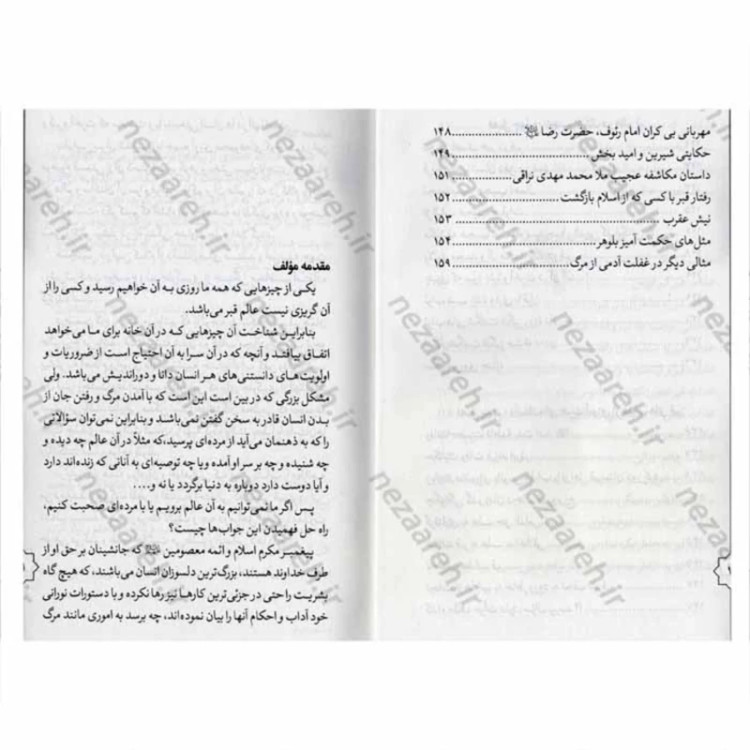 مهربانی بی کران امام رئوف، حضرت رضا ........ ۱۴۸
حکایتی شیرین و امید بخش ........ ۱۴۹
داستان مکاشفه عجیب ملا محمد مهدی نراقی ........ ۱۵۱
رفتار قبر با کسی که از اسلام بازگشت ........ ۱۵۲
نیش عقرب ........ ۱۵۳
مثل‌های حکمت آمیز بلوهر ........ ۱۵۴
مثالی دیگر در غفلت آدمی از مرگ ........ ۱۵۹
مقدمه مؤلف
یکی از چیزهایی که همه ما روزی به آن خواهیم رسید و کسی را از
آن گریزی نیست عالم قبر می‌باشد.
بنابراین شناخت آن چیزهایی که در آن خانه برای ما می‌خواهد
اتفاق بیافتد و آنچه که در آن سرا به آن احتیاج است از ضروریات و
اولویت‌های دانستنی‌های هر انسان دانا و دوراندیش می‌باشد. ولی
مشکل بزرگی که در بین است این است که با آمدن مرگ و رفتن جان از
بدن انسان قادر به سخن گفتن نمی‌باشد و بنابراین نمی‌توان سؤالاتی
را که به ذهنمان می‌آید از مرده‌ای پرسید، که مثلاً در آن عالم چه دیده و
چه شنیده و چه بر سر او آمده و یا چه توصیه‌ای به آنانی که زنده‌اند دارد
و آیا دوست دارد دوباره به دنیا برگردد یا نه و....
پس اگر ما نمی‌توانیم به آن عالم برویم یا با مرده‌ای صحبت کنیم،
راه حل فهمیدن این جواب‌ها چیست؟
پیغمبر مکرم اسلام و ائمه معصومین که جانشینان بر حق او از
طرف خداوند هستند، بزرگ‌ترین دلسوزان انسان می‌باشند، که هیچ گاه
بشریت را حتی در جزئی‌ترین کارها نیز رها نکرده و با دستورات نورانی
خود آداب و احکام آنها را بیان نموده‌اند، چه برسد به اموری مانند مرگ
nezaareh.ir